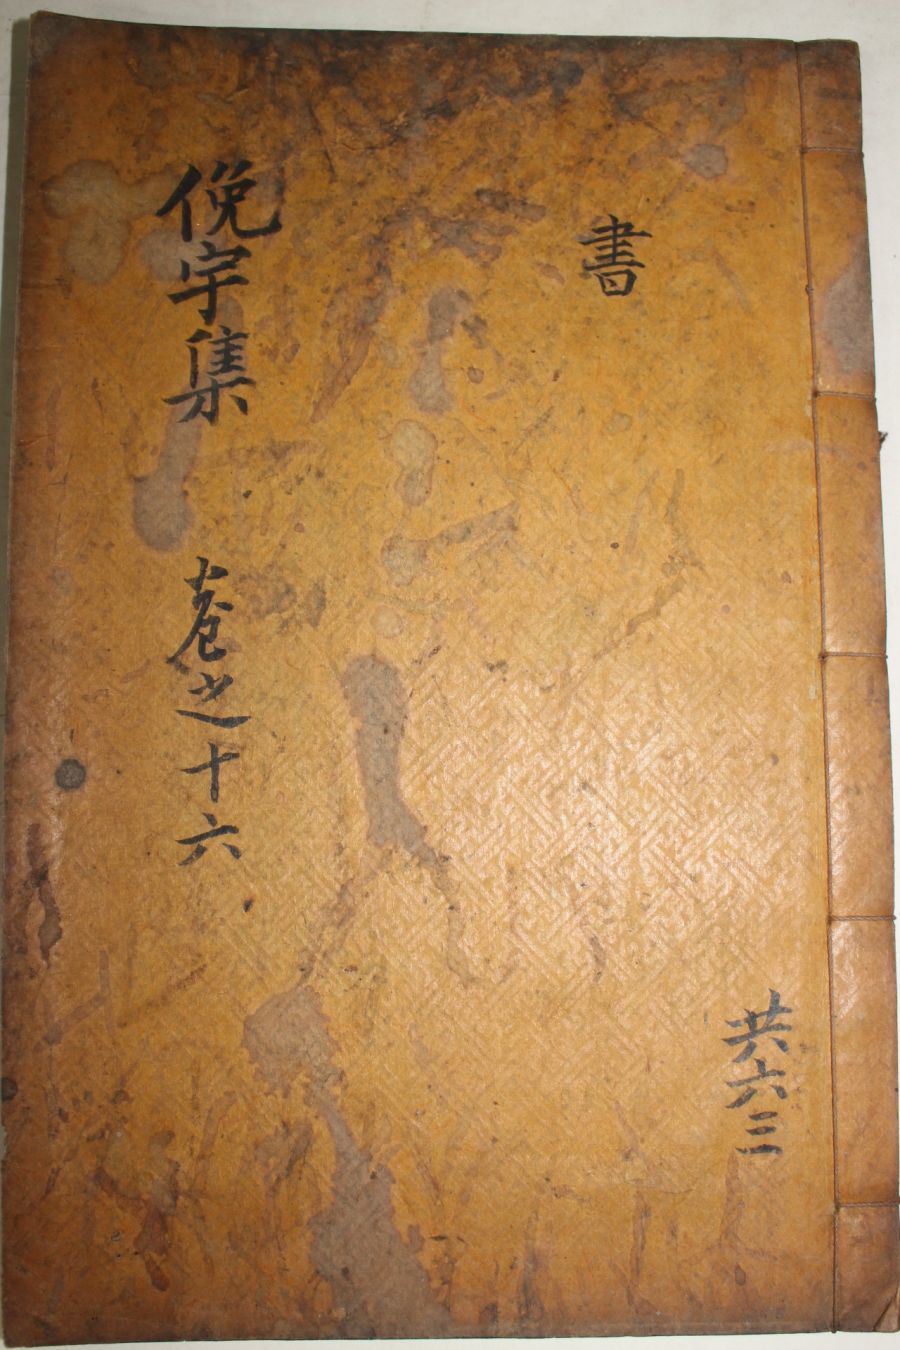 書
俛宇集 卷之十六
共六三